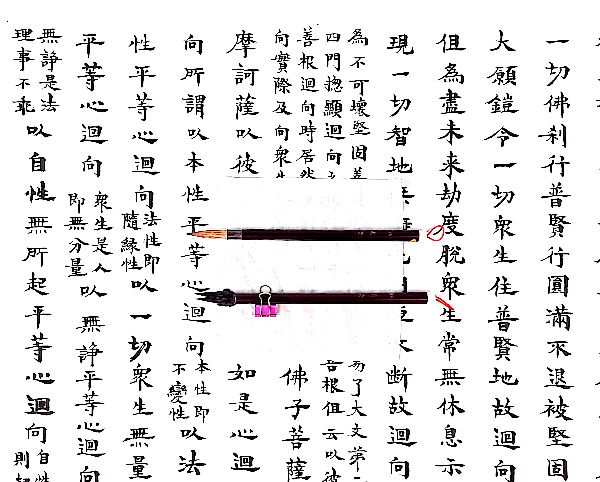 一切佛刹行普賢行圓滿不退被堅固
大願鎧令一切衆生住普賢地故迴向
但為盡未来劫度脫衆生常無休息示
現一切智地 斷故迴向
為不可壞堅固
四門惣顯迴向
了大文第
根但云以彼
善根迴向時居然
向實際及向衆生
佛子菩薩
摩訶薩以彼
如是心迴
向所謂以本性平等心迴向
本性即
不變性
以法
性平等心迴向
法性即
隨緣性
以一切衆生無量
平等心迴向
衆生是人
即無分量
以無諍平等心迴向
無諍是法
理事不乖
以自性無所起平等心迴向
自性
則